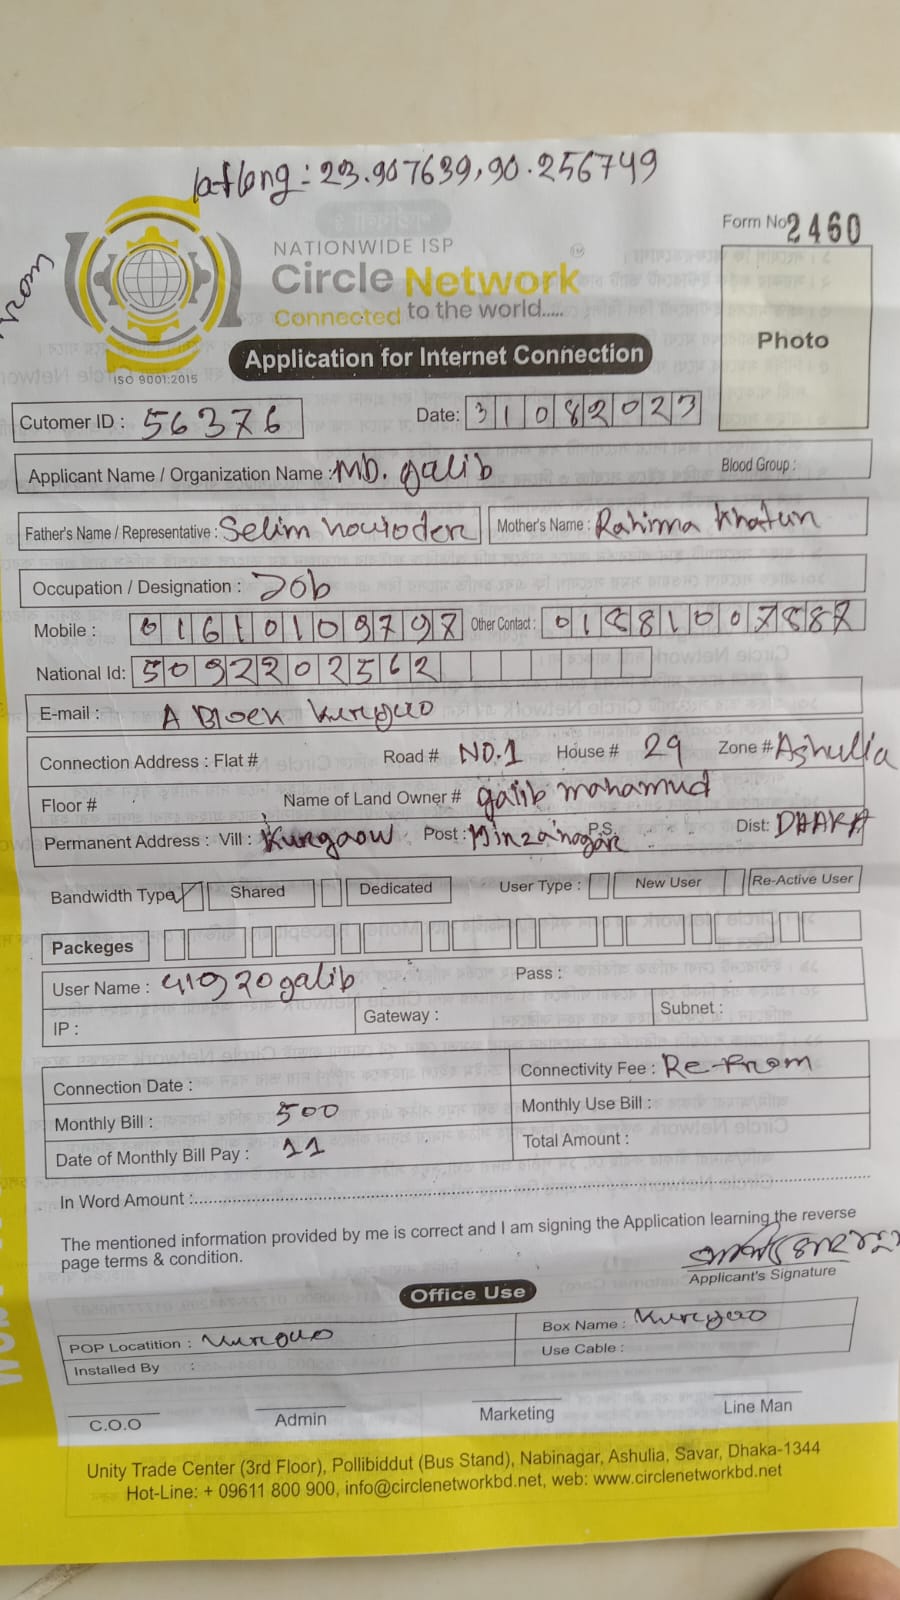 lat long : 23.907639, 90.256749
Form No 2460
NATIONWIDE ISP
Circle Network
Connected to the world.....
ISO 9001:2015
Application for Internet Connection
Photo
Cutomer ID : 56376
Date: 31082023
Applicant Name / Organization Name : MD. galib
Blood Group :
Father's Name / Representative : Selim howloder
Mother's Name : Rahima Khatun
Occupation / Designation : Job
Mobile : 01610109797 Other Contact : 01881007887
National Id: 5092202562
E-mail : A Block Kurgao
Connection Address : Flat # Road # NO.1 House # 29 Zone # Ashulia
Floor # Name of Land Owner # galib mahamud
Permanent Address : Vill : Kurgaow Post : Mirzanogar P.S. Dist: DHAKA
Bandwidth Type Shared Dedicated User Type : New User Re-Active User
Packeges
User Name : 41920galib Pass :
IP : Gateway : Subnet :
Connection Date : Connectivity Fee : Re-From
Monthly Bill : 500 Monthly Use Bill :
Date of Monthly Bill Pay : 11 Total Amount :
In Word Amount :
The mentioned information provided by me is correct and I am signing the Application learning the reverse
page terms & condition.
Applicant's Signature
Office Use
POP Locatition : Kurgao Box Name : Kurgao
Installed By : Use Cable :
C.O.O Admin Marketing Line Man
Unity Trade Center (3rd Floor), Pollibiddut (Bus Stand), Nabinagar, Ashulia, Savar, Dhaka-1344
Hot-Line: + 09611 800 900, info@circlenetworkbd.net, web: www.circlenetworkbd.net